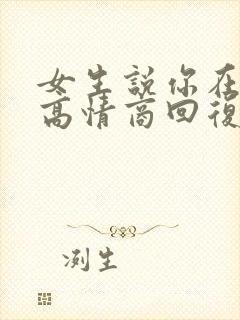 女生說你在
高情商回復
冽生